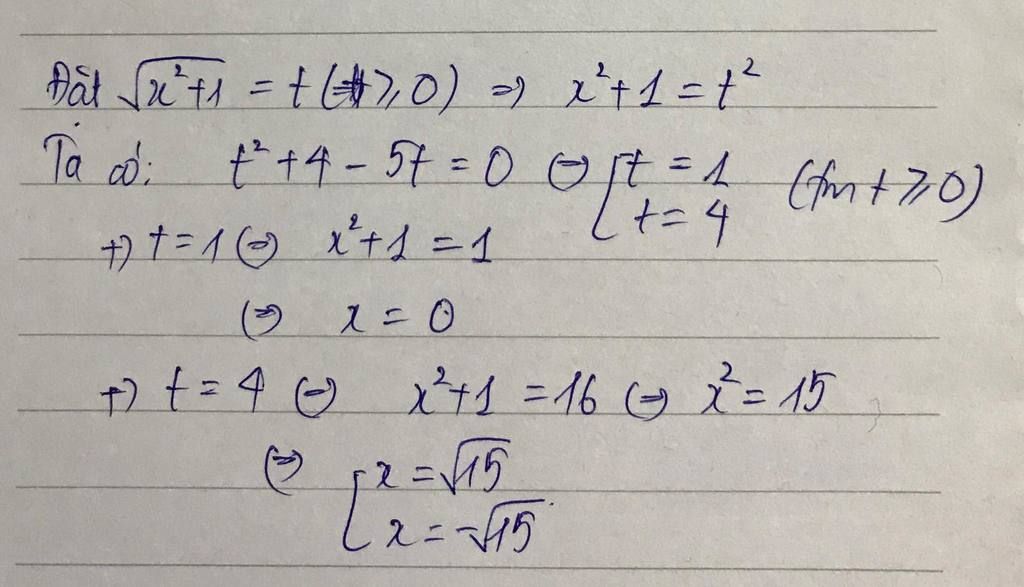 Đặt √(x²+1) = t (t ≥ 0) ⇒ x²+1 = t²
Ta có: t² + 4 - 5t = 0 ⇔ [ t = 1 (tm t ≥ 0)
t = 4
+) t = 1 ⇔ x²+1 = 1
⇔ x = 0
+) t = 4 ⇔ x²+1 = 16 ⇔ x² = 15
⇔ [ x = √15
x = -√15